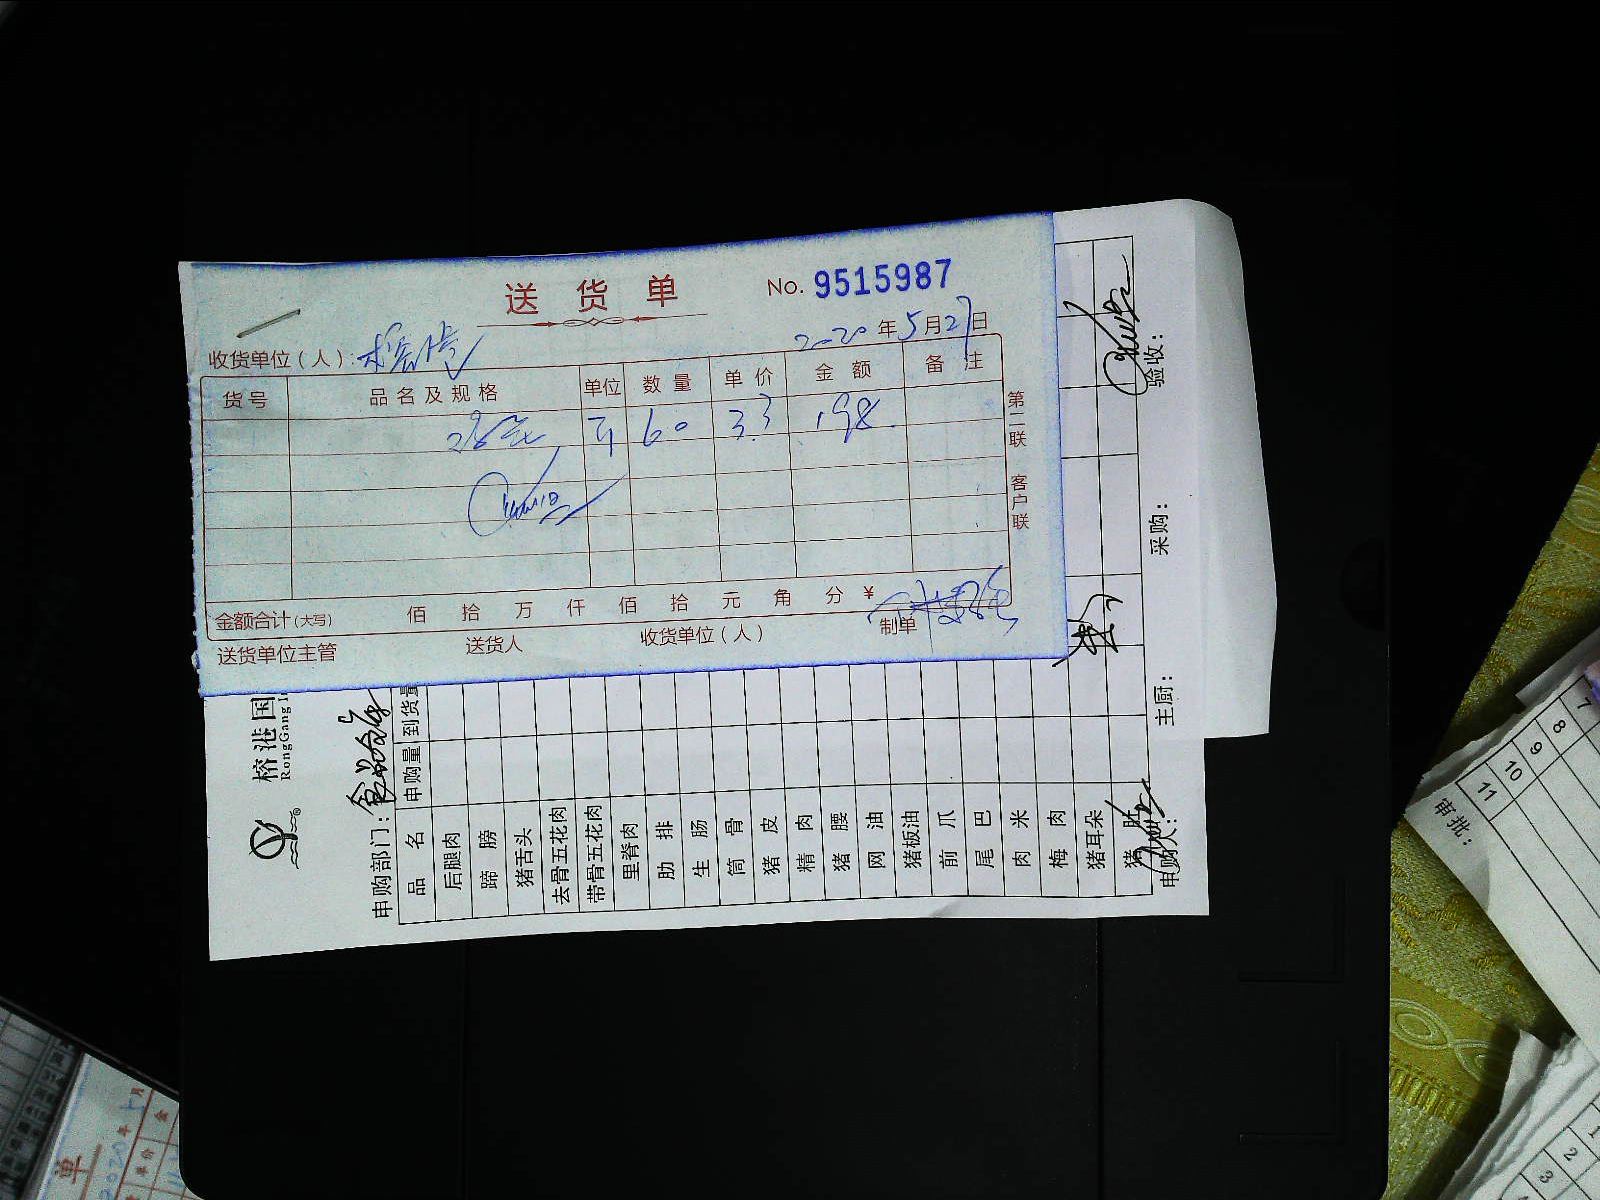 送货单
No. 9515987
收货单位（人）:
2020年5月27日
货号 品名及规格 单位 数量 单价 金额 备注
斤 60 3.3 198
第二联 客户联
金额合计(大写) 佰 拾 万 仟 佰 拾 元 角 分 ¥
送货单位主管 送货人 收货单位（人） 制单
榕港国
RongGang I
申购部门:
品名 申购量 到货量
后腿肉
蹄膀
猪舌头
去骨五花肉
带骨五花肉
里脊肉
肋排
生肠
筒骨
猪皮
精肉
猪腰
网油
猪板油
前爪
尾巴
肉米
梅肉
猪耳朵
猪
申购人: 主厨: 采购: 验收:
7
8
9
10
11
审批:
1
2
3
单
2020年5月
单价 金